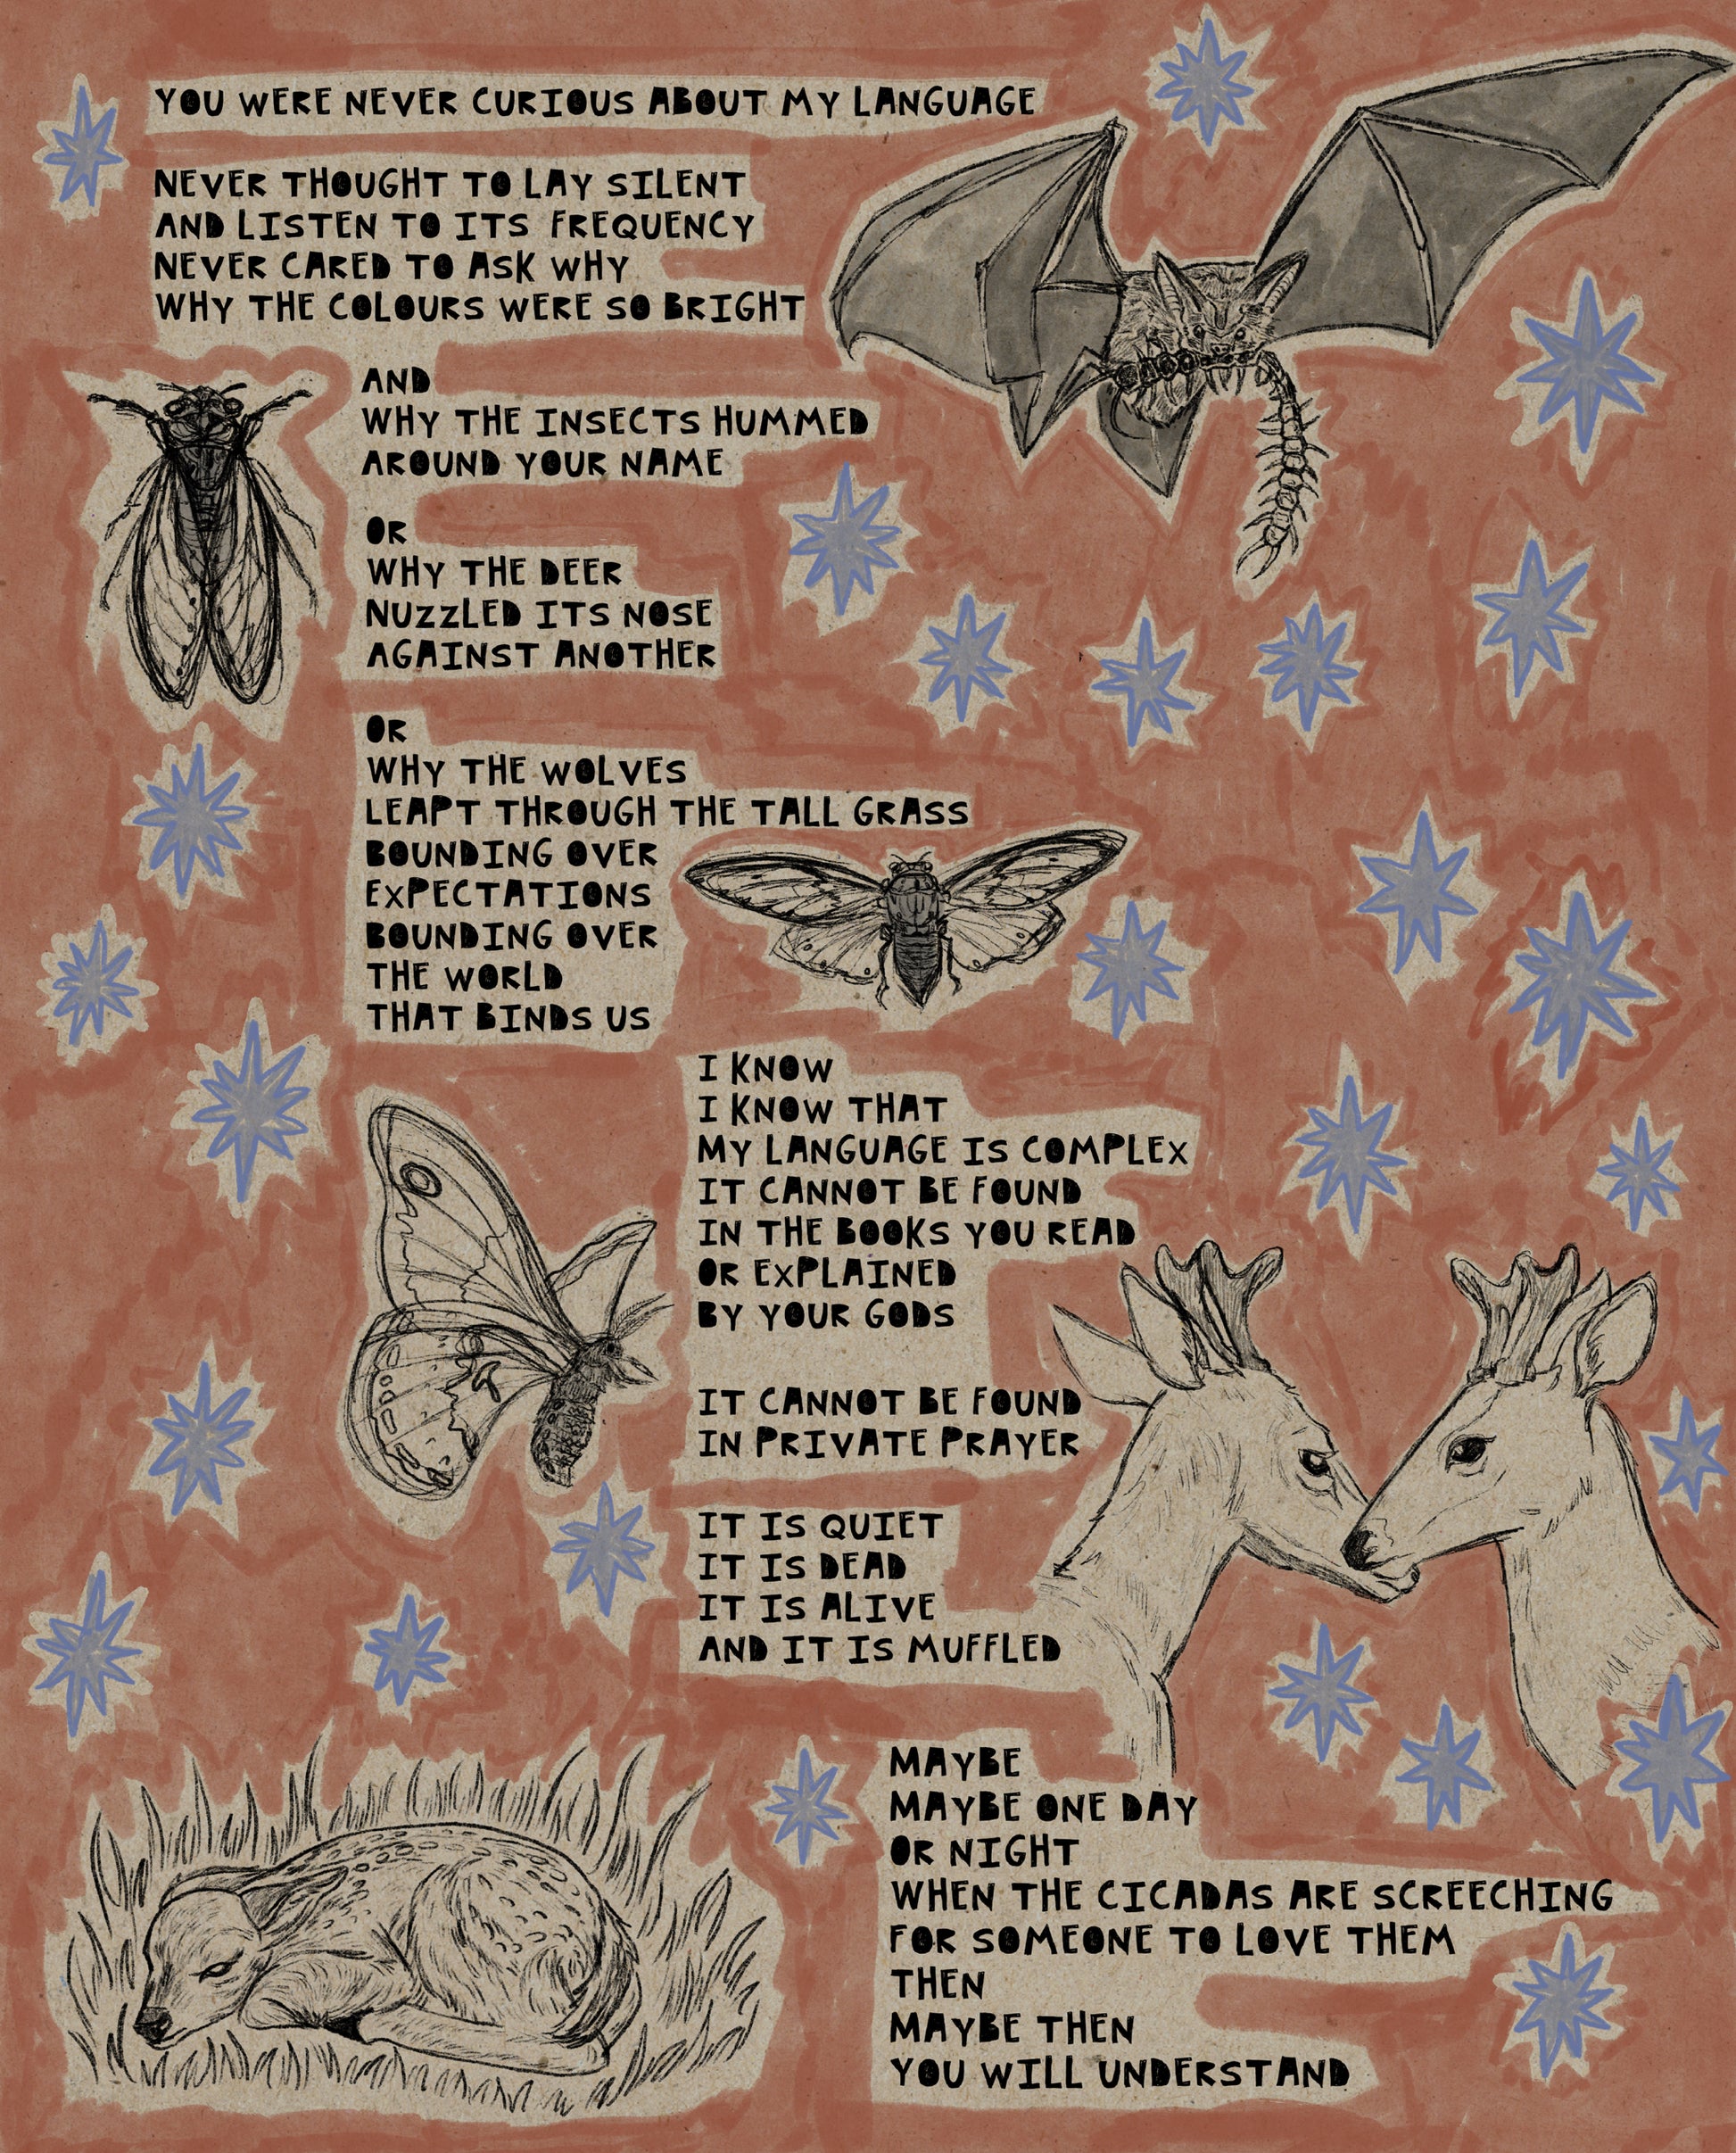 YOU WERE NEVER CURIOUS ABOUT MY LANGUAGE
NEVER THOUGHT TO LAY SILENT
AND LISTEN TO ITS FREQUENCY
NEVER CARED TO ASK WHY
WHY THE COLOURS WERE SO BRIGHT
AND
WHY THE INSECTS HUMMED
AROUND YOUR NAME
OR
WHY THE DEER
NUZZLED ITS NOSE
AGAINST ANOTHER
OR
WHY THE WOLVES
LEAPT THROUGH THE TALL GRASS
BOUNDING OVER
EXPECTATIONS
BOUNDING OVER
THE WORLD
THAT BINDS US
I KNOW
I KNOW THAT
MY LANGUAGE IS COMPLEX
IT CANNOT BE FOUND
IN THE BOOKS YOU READ
OR EXPLAINED
BY YOUR GODS
IT CANNOT BE FOUND
IN PRIVATE PRAYER
IT IS QUIET
IT IS DEAD
IT IS ALIVE
AND IT IS MUFFLED
MAYBE
MAYBE ONE DAY
OR NIGHT
WHEN THE CICADAS ARE SCREECHING
FOR SOMEONE TO LOVE THEM
THEN
MAYBE THEN
YOU WILL UNDERSTAND